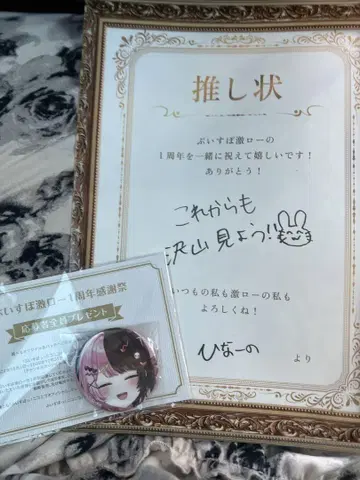 推し状
ぶいすぽ激ローの
1周年を一緒に祝えて嬉しいです!
ありがとう!
これからも
沢山見よう!!
いつもの私も激ローの私も
よろしくね!
ひなーの
より
ぶいすぽ激ロー1周年感謝祭
応募者全員プレゼント